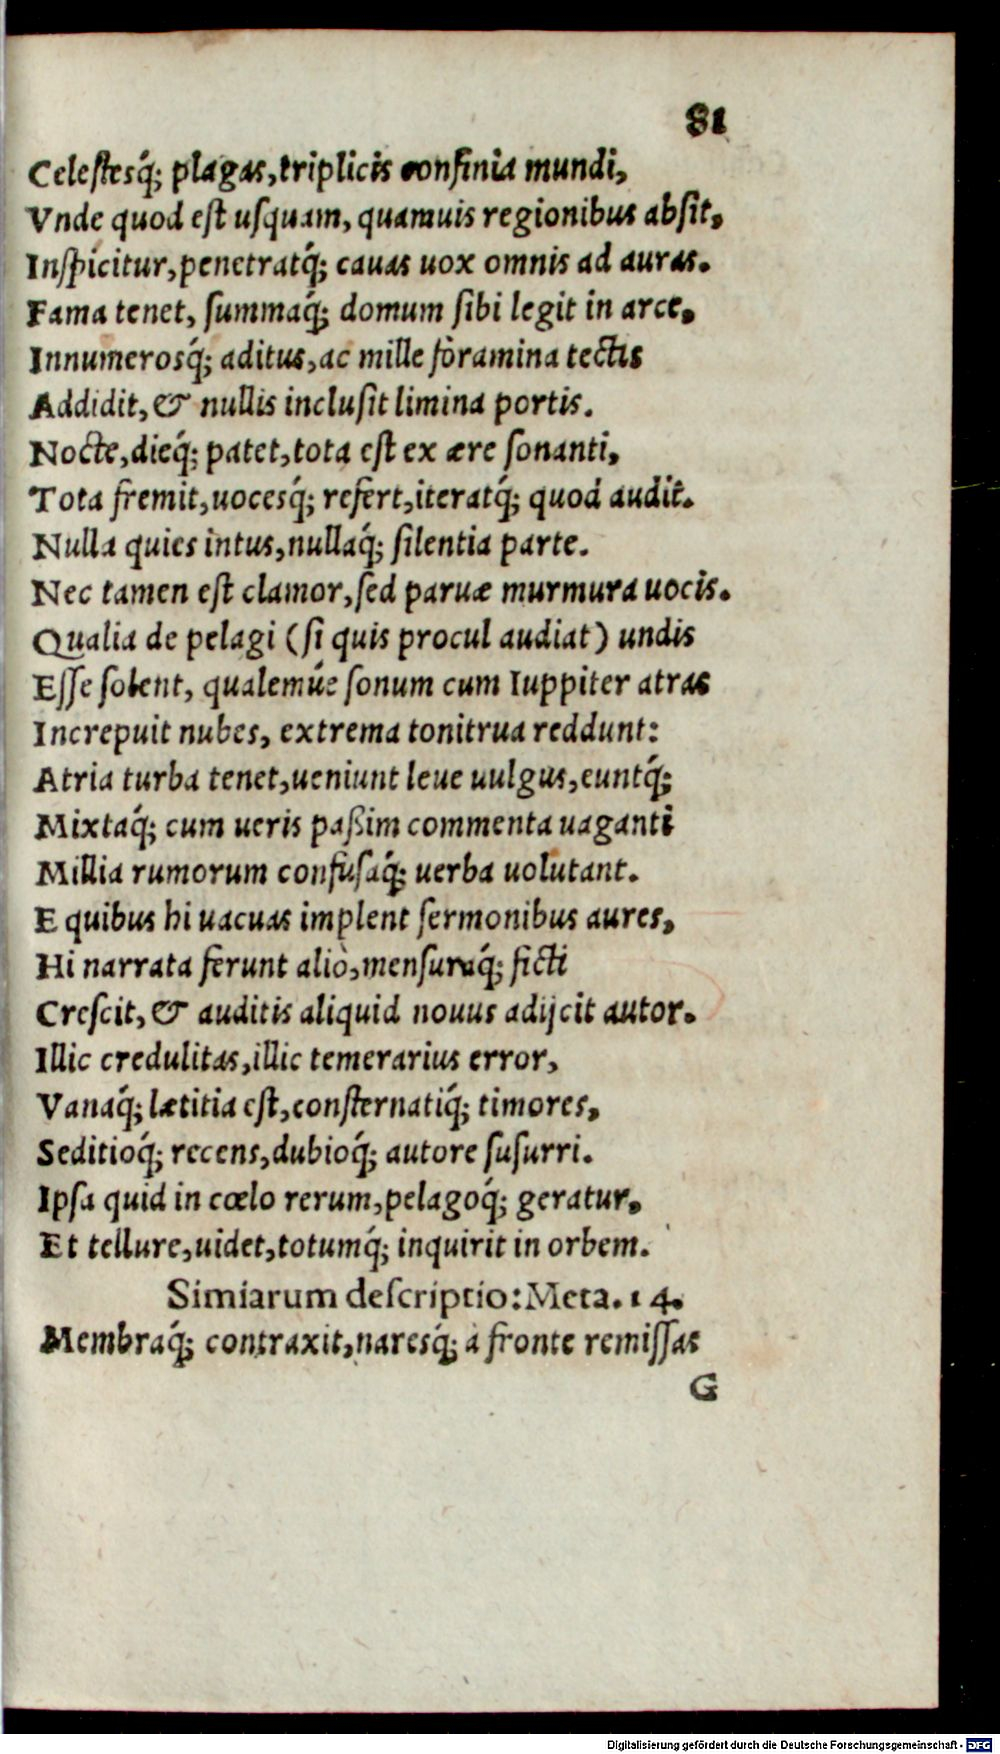 81
Celeſtesq́; plagas, triplicis confinia mundi,
Vnde quod eſt uſquam, quamuis regionibus abſit,
Inſpicitur, penetratq́; cauas uox omnis ad auras.
Fama tenet, ſummaq́; domum ſibi legit in arce,
Innumerosq́; aditus, ac mille foramina tectis
Addidit, & nullis incluſit limina portis.
Nocte, dieq́; patet, tota eſt ex ære ſonanti,
Tota fremit, uocesq́; refert, iteratq́; quod audit.
Nulla quies intus, nullaq́; ſilentia parte.
Nec tamen eſt clamor, ſed paruæ murmura uocis.
Qualia de pelagi (ſi quis procul audiat) undis
Eſſe ſolent, qualemúe ſonum cum Iuppiter atras
Increpuit nubes, extrema tonitrua reddunt:
Atria turba tenet, ueniunt leue uulgus, euntq́;
Mixtaq́; cum ueris paßim commenta uaganti
Millia rumorum confuſaq́; uerba uolutant.
E quibus hi uacuas implent ſermonibus aures,
Hi narrata ferunt aliò, menſuraq́; ficti
Creſcit, & auditis aliquid nouus adijcit autor.
Illic credulitas, illic temerarius error,
Vanaq́; lætitia eſt, conſternatiq́; timores,
Seditioq́; recens, dubioq́; autore ſuſurri.
Ipſa quid in cœlo rerum, pelagoq́; geratur,
Et tellure, uidet, totumq́; inquirit in orbem.
Simiarum deſcriptio: Meta. 14.
Membraq́; contraxit, naresq́; à fronte remiſſas
G
Digitalisierung gefördert durch die Deutsche Forschungsgemeinschaft - DFG